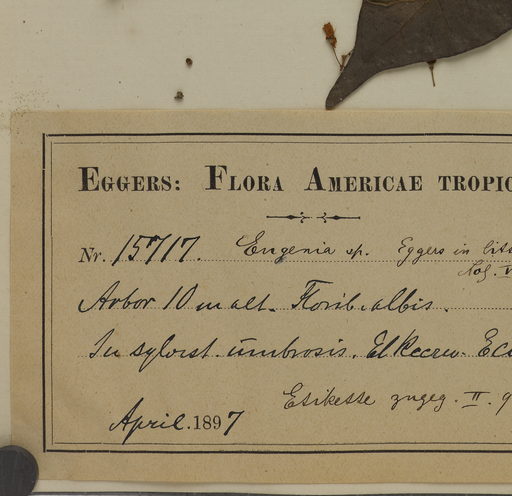 EGGERS: FLORA AMERICAE TROPIC
Nr. 15717. Eugenia sp. Eggers in litt
Arbor 10 m alt. Florib. albis.
In sylvist. umbrosis. El Recreo. Ec
Etikette zugeg. II. 9
April. 1897